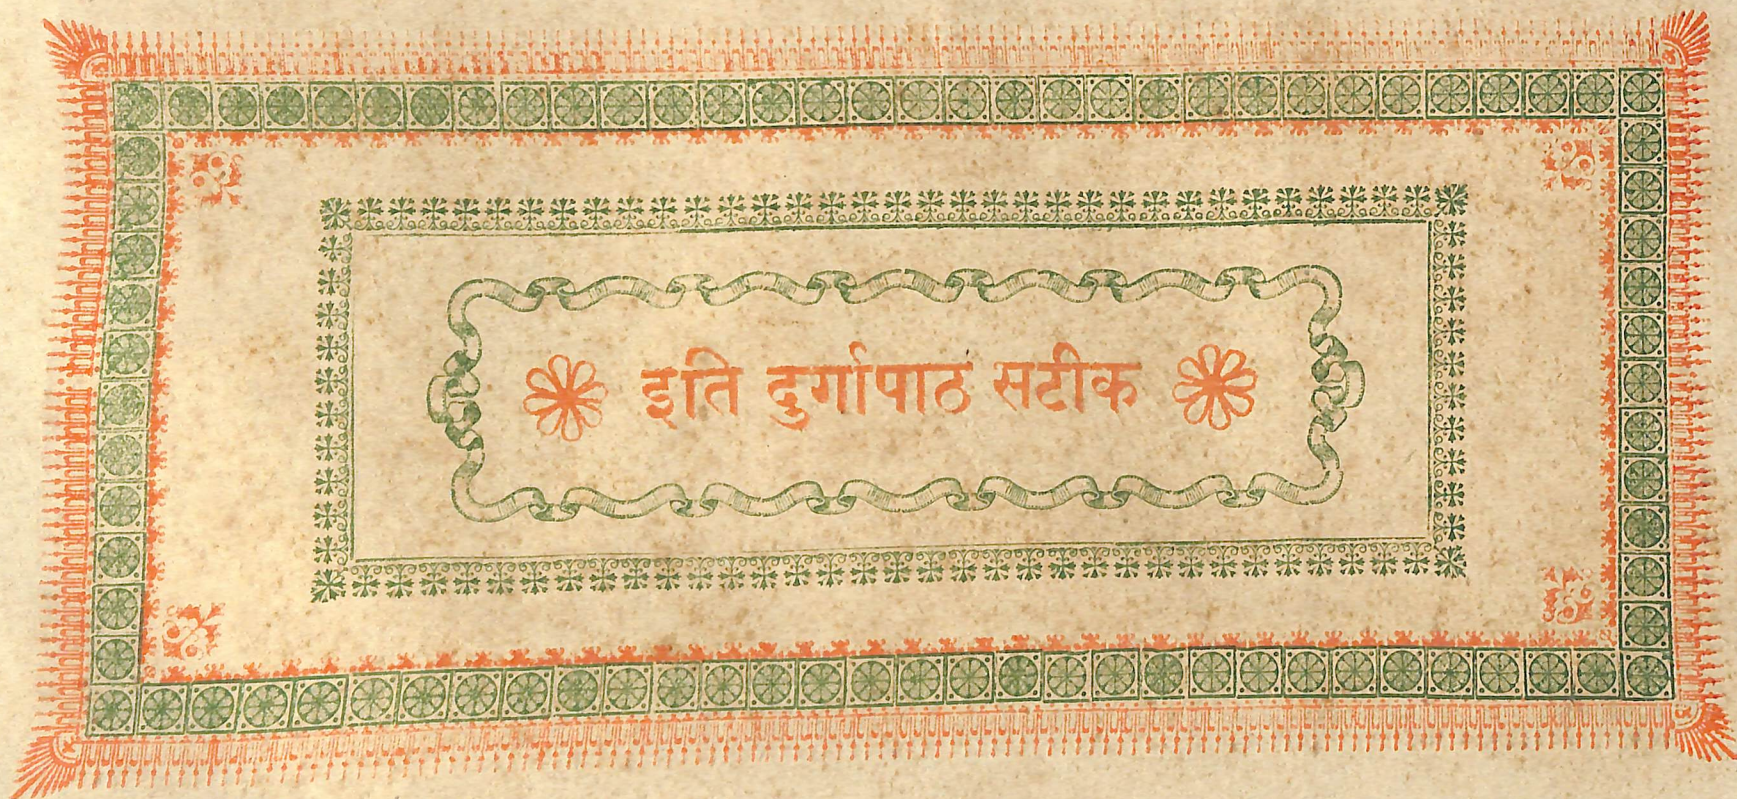 इति दुर्गापाठ सटीक